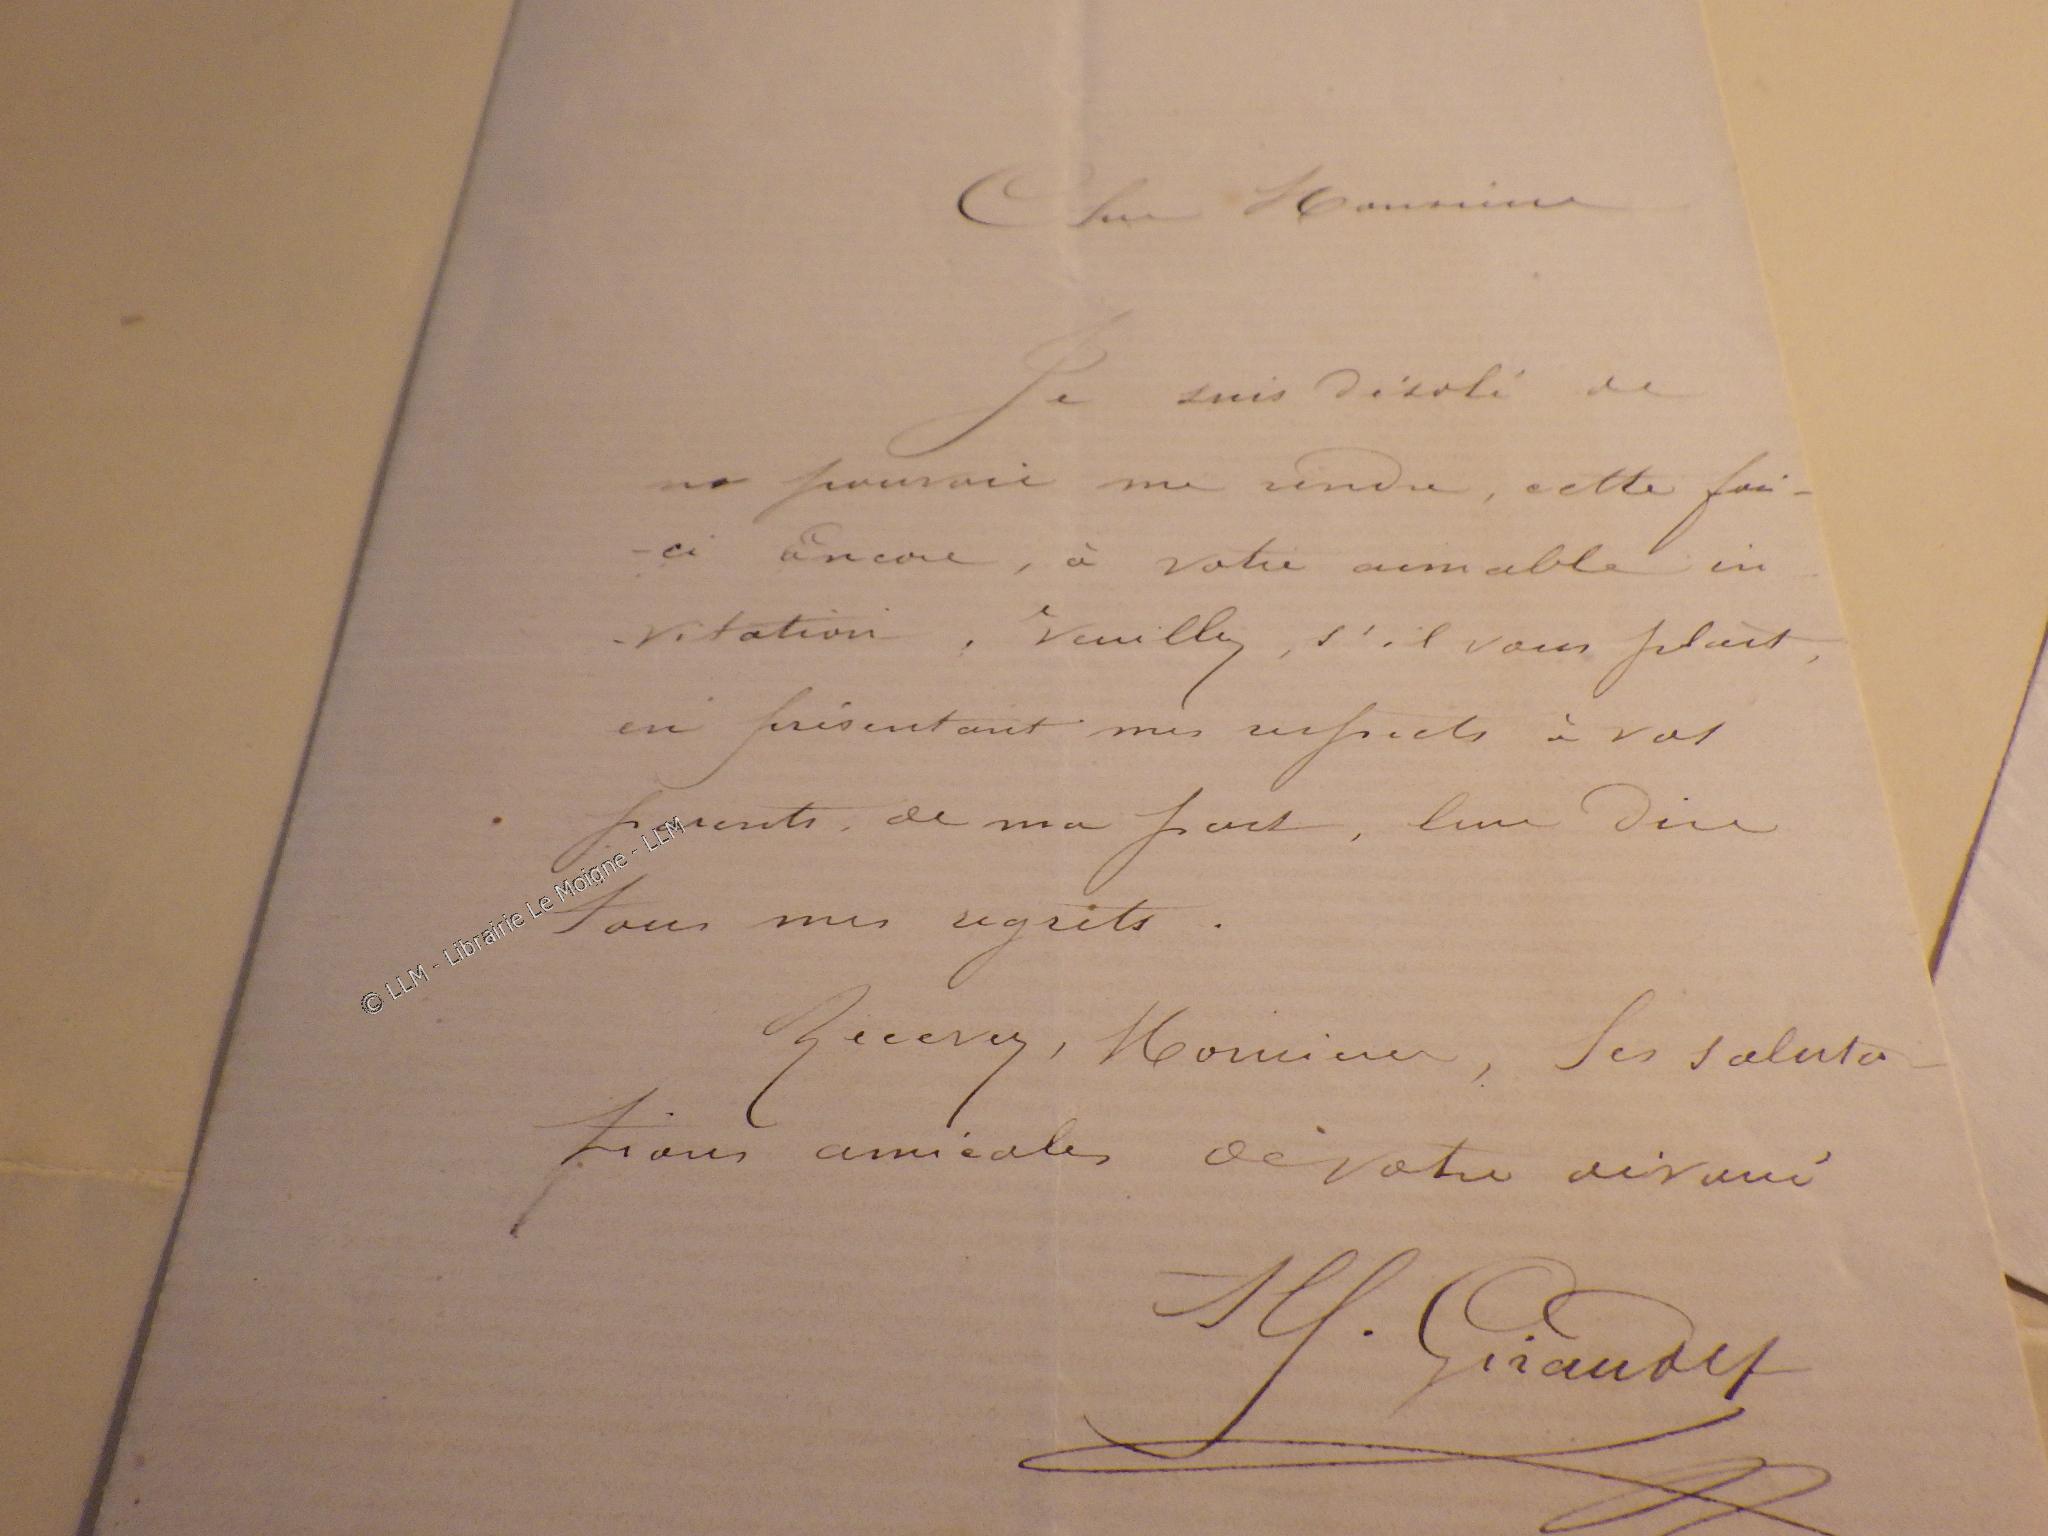 Cher Monsieur
Je suis désolé de
ne pouvoir me rendre, cette fois-
-ci encore, à votre aimable in-
-vitation. Veuillez, s'il vous plait,
en présentant mes respects à vos
parents, de ma part, leur dire
tous mes regrets.
Recevez, Monsieur, les saluta-
tions amicales de votre dévoué
Alf. Giraudet
© LLM - Librairie Le Moigne - LLM